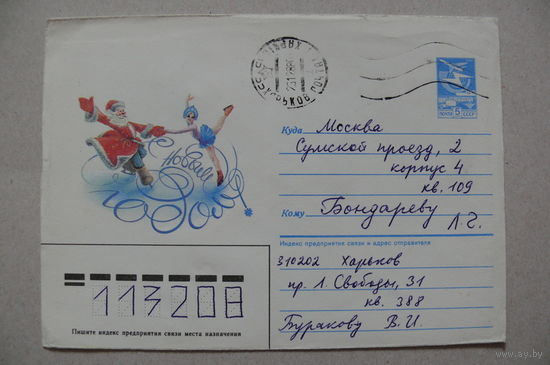 С Новым годом!
ПОЧТА 5 СССР
Куда Москва
Сумской проезд, 2
корпус 4
кв. 109
Кому Бондареву
Л Г.
Индекс предприятия связи и адрес отправителя
310202 Харьков
пр. Л. Свободы, 31
кв. 388
Буракову В. И.
113208
Пишите индекс предприятия связи места назначения
www.ay.by